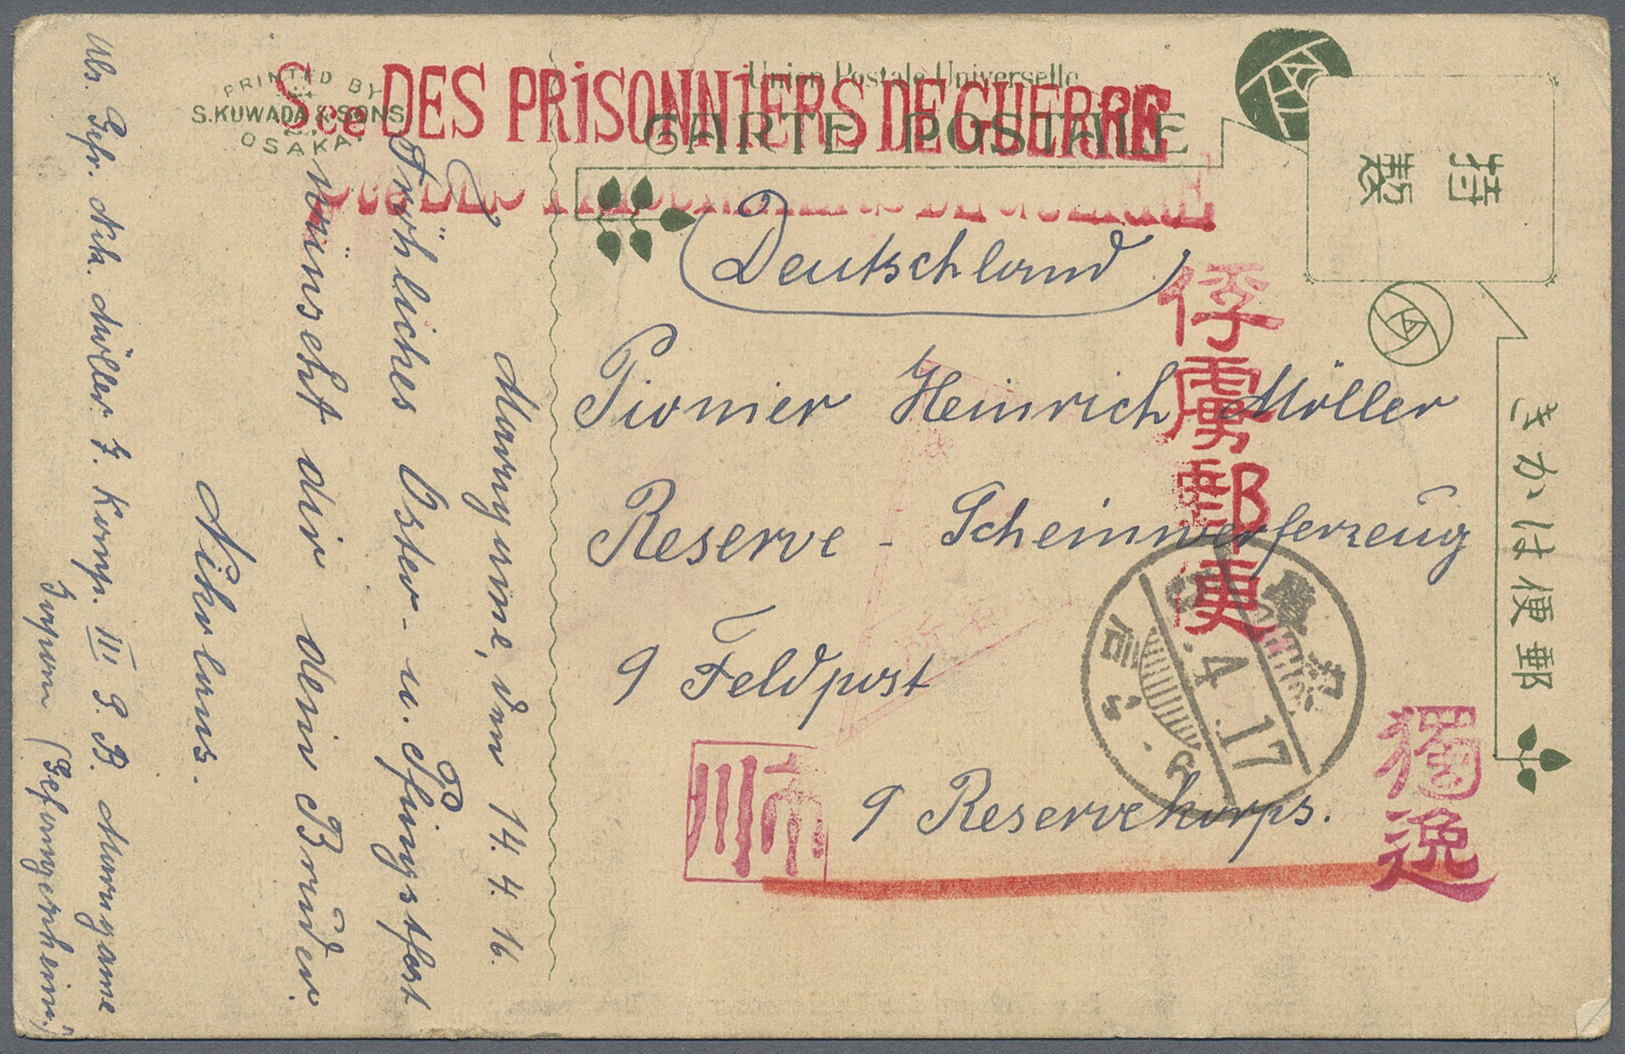 PRINTED BY
S. KUWADA & SONS
OSAKA.
Union Postale Universelle
CARTE POSTALE
Sce DES PRISONNIERS DE GUERRE
Sce DES PRISONNIERS DE GUERRE
特製
きかは便郵
俘虜郵便
獨逸
Deutschland
Pionier Heinrich Möller
Reserve - Scheinwerferzeug
9 Feldpost
9 Reservekorps.
4.17
Marugame, den 14. 4. 16.
Fröhliches Oster- u. Pfingstfest
wünscht dir dein Bruder
Nikolaus.
Abs. Gefr. Nik. Möller 7. Komp. III S. B. Marugame
Japan (Gefangenheim)